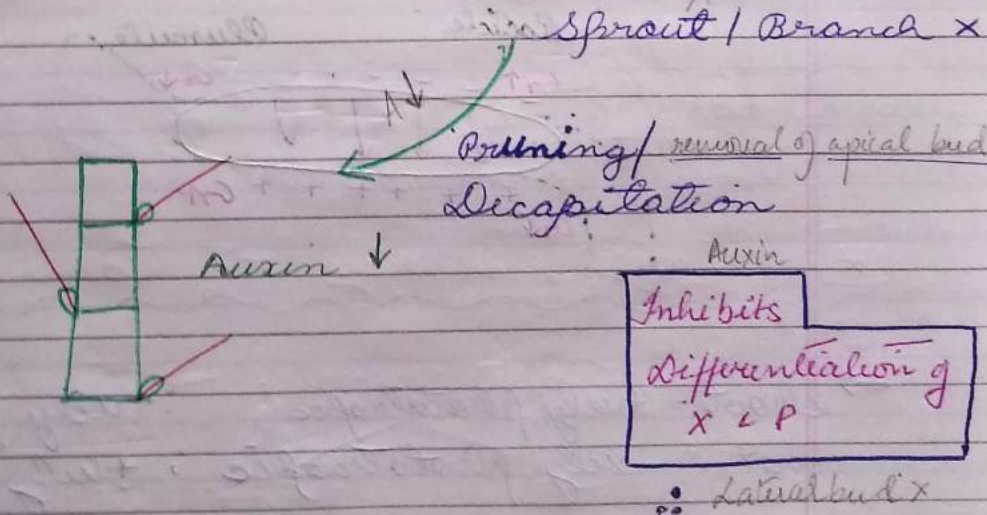 Sprout / Branch ×
A↓
Pruning / removal of apical bud
Decapitation
Auxin ↓
∵ Auxin
Inhibits
Differentiation of
X & P
∴ Lateral bud ×